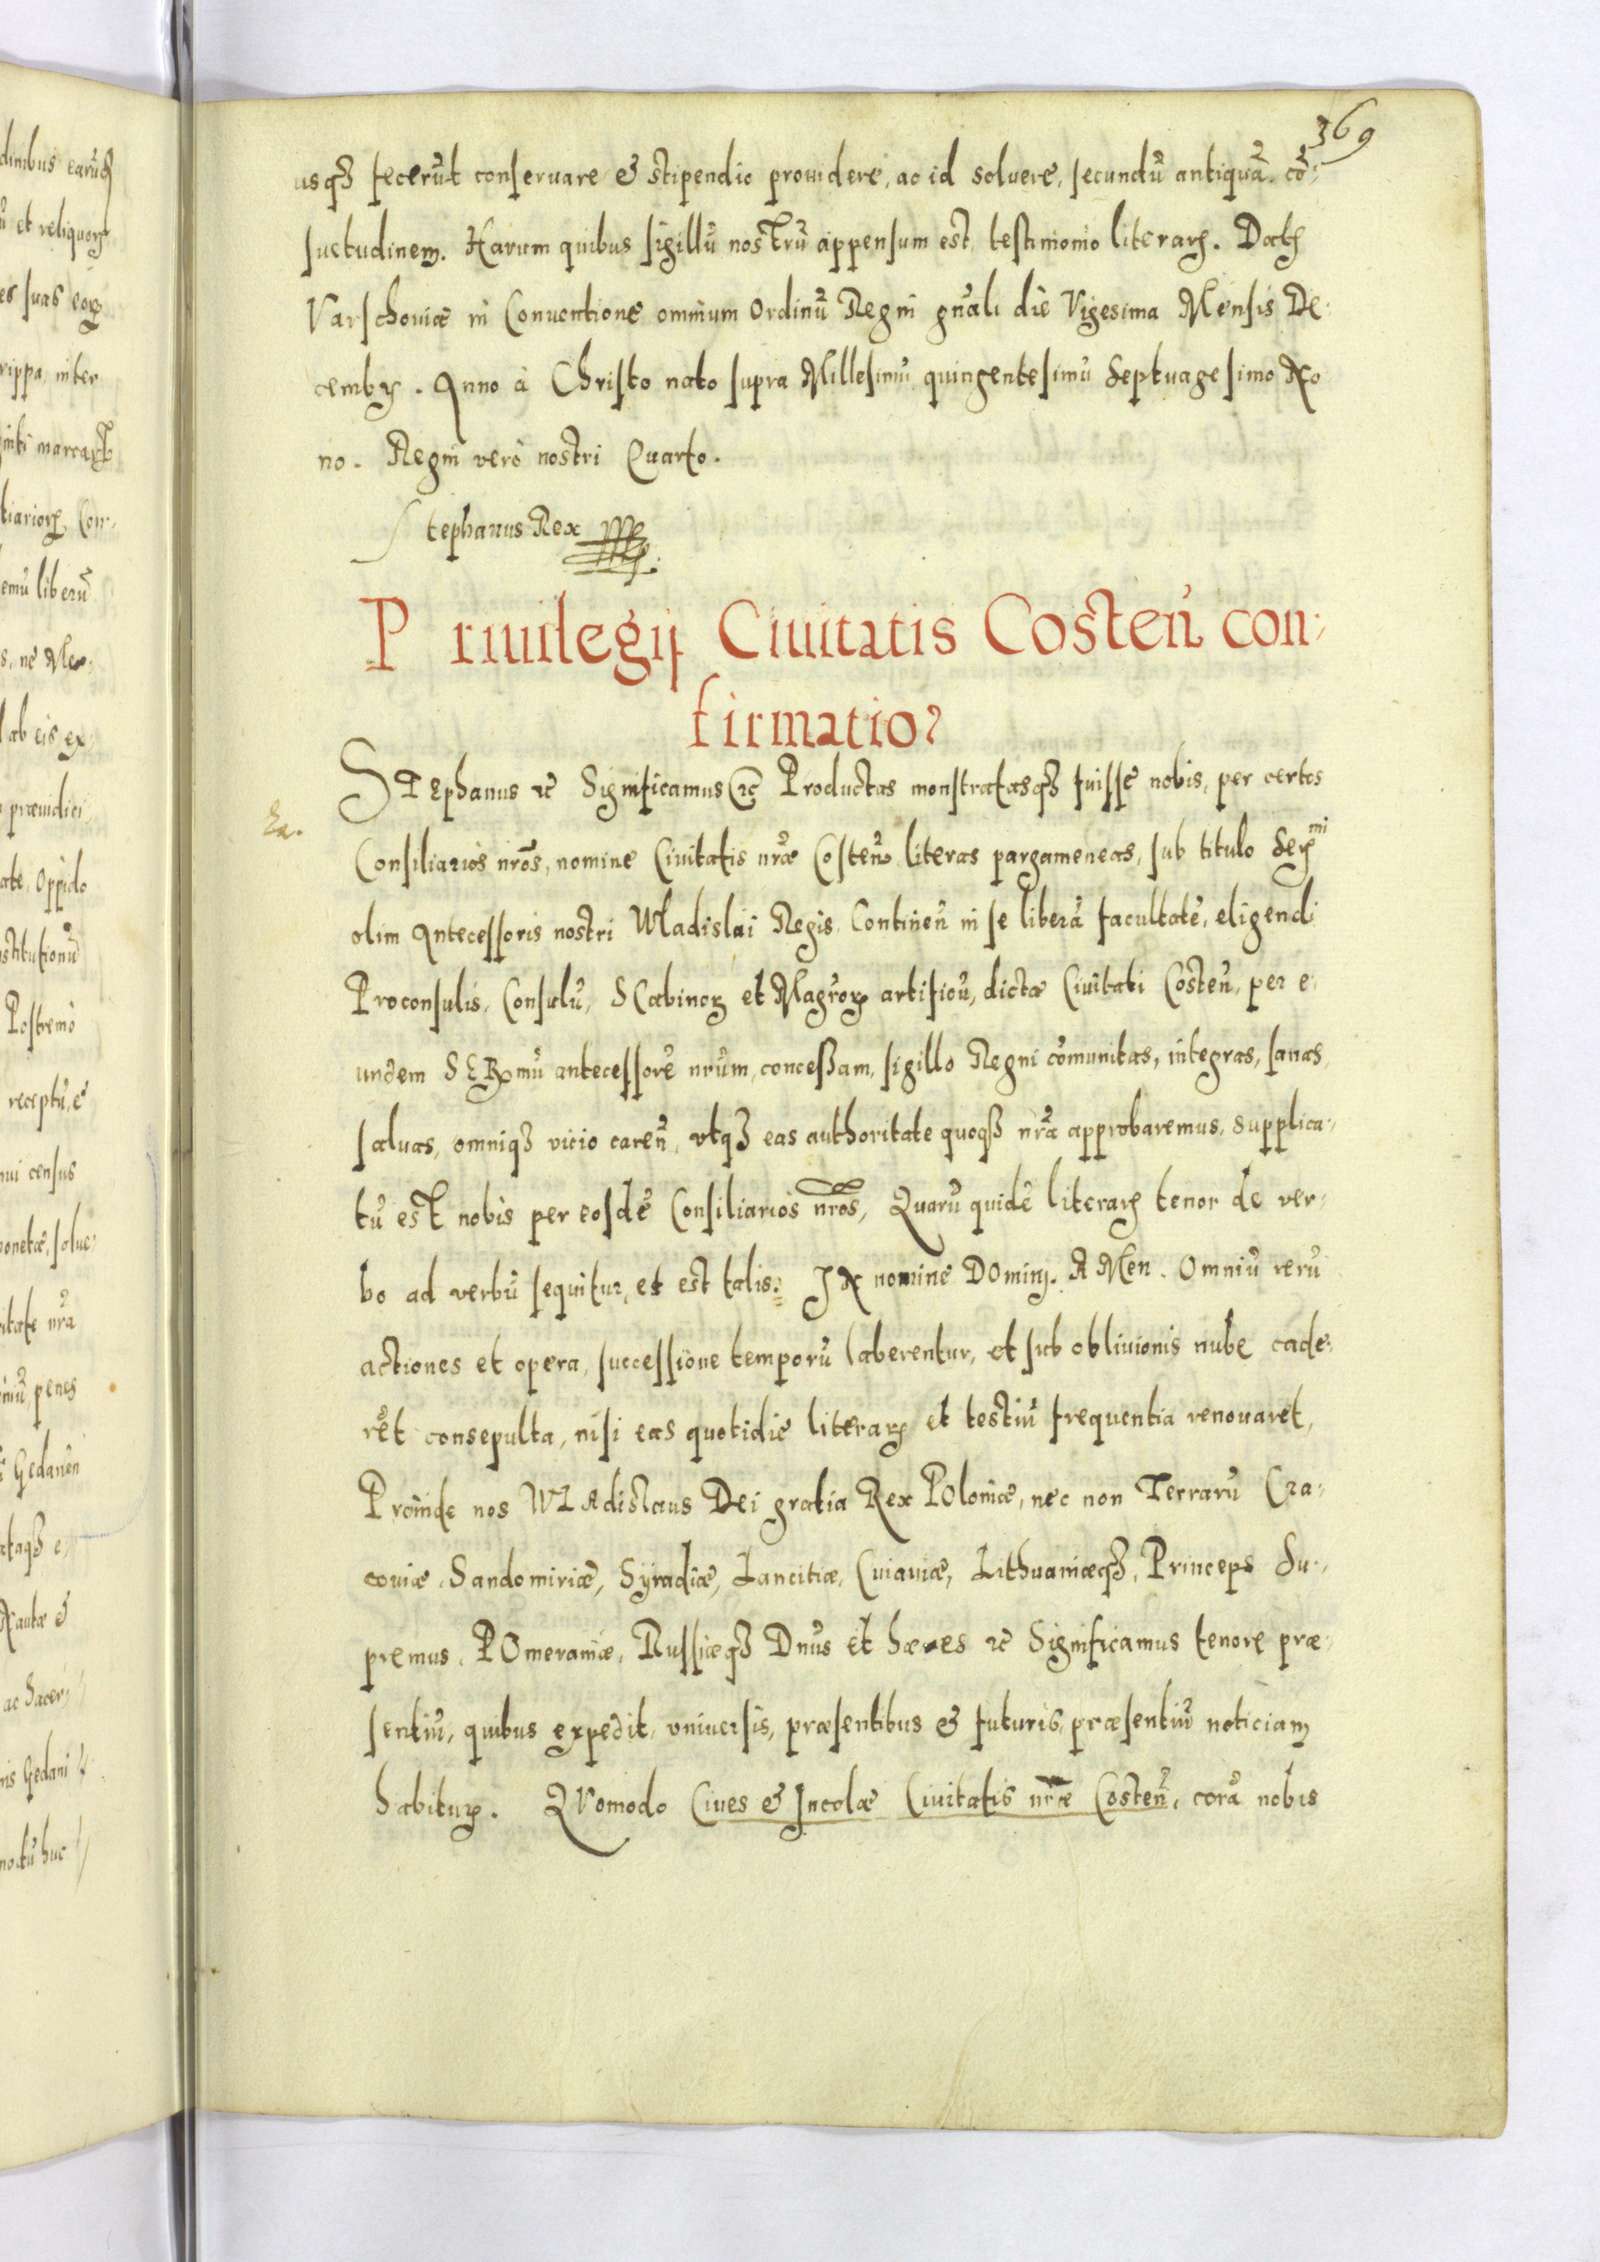 369
usq3 fecerũt conseruare & stipendio prouidere, ac id soluere, secundũ antiquã cõ:
suetudinem. Harum quibus sigillũ nostrũ appensum est, testimonio literarꝝ. Datꝫ
Varschouiæ in Conuentione omnium Ordinũ Regni gnãli die Vigesima Mensis De:
cembꝝ. Anno à Christo nato supra Millesimũ quingentesimũ Septuagesimo No
no. Regni verò nostri Quarto.
Stephanus Rex
Priuilegij Ciuitatis Costen̄ con:
firmatio
STEphanus ꝛc Significamus ꝛc Productas monstratasq3 fuisse nobis, per certos
Consiliarios nr̃os, nomine Ciuitatis nr̃æ Costen̄ literas pargameneas, sub titulo Serᵐⁱ
olim Antecessoris nostri Wladislai Regis, Continen̄ in se liberã facultatẽ, eligendi
Proconsulis, Consulũ, SCabinorꝝ et Magr̃orꝝ artificũ, dictæ Ciuitati Costen̄, per e:
undem SERmũ antecessorẽ nr̃um, conceßam, sigillo Regni cõmunitas, integras, sanas,
saluas, omniq3 vicio caren̄, vtq3 eas authoritate quoq3 nr̃a approbaremus, supplica:
tũ est nobis per eosdẽ Consiliarios nr̃os, Quarũ quidẽ literarꝝ tenor de ver:
bo ad verbũ sequitur, et est talis: IN nomine DOminj. AMen. Omniũ rerũ
actiones et opera, successione temporũ laberentur, et sub obliuionis nube cade:
rẽt consepulta, nisi eas quotidie literarꝝ et testiũ frequentia renouaret,
Proinde nos WLAdislaus Dei gratia Rex POloniæ, nec non Terrarũ Cra:
couiæ, Sandomiriæ, Syradiæ, Lancitiæ, Cuiauiæ, Lithuaniæq3, Princeps Su:
premus, POmeraniæ, Russiæq3 Dn̄us et hæres ꝛc Significamus tenore præ:
sentiũ, quibus expedit, vniuersis, præsentibus & futuris, præsentiũ noticiam
habiturꝝ. QVomodo Ciues & Incolæ Ciuitatis nr̃æ Costen̄, corã nobis